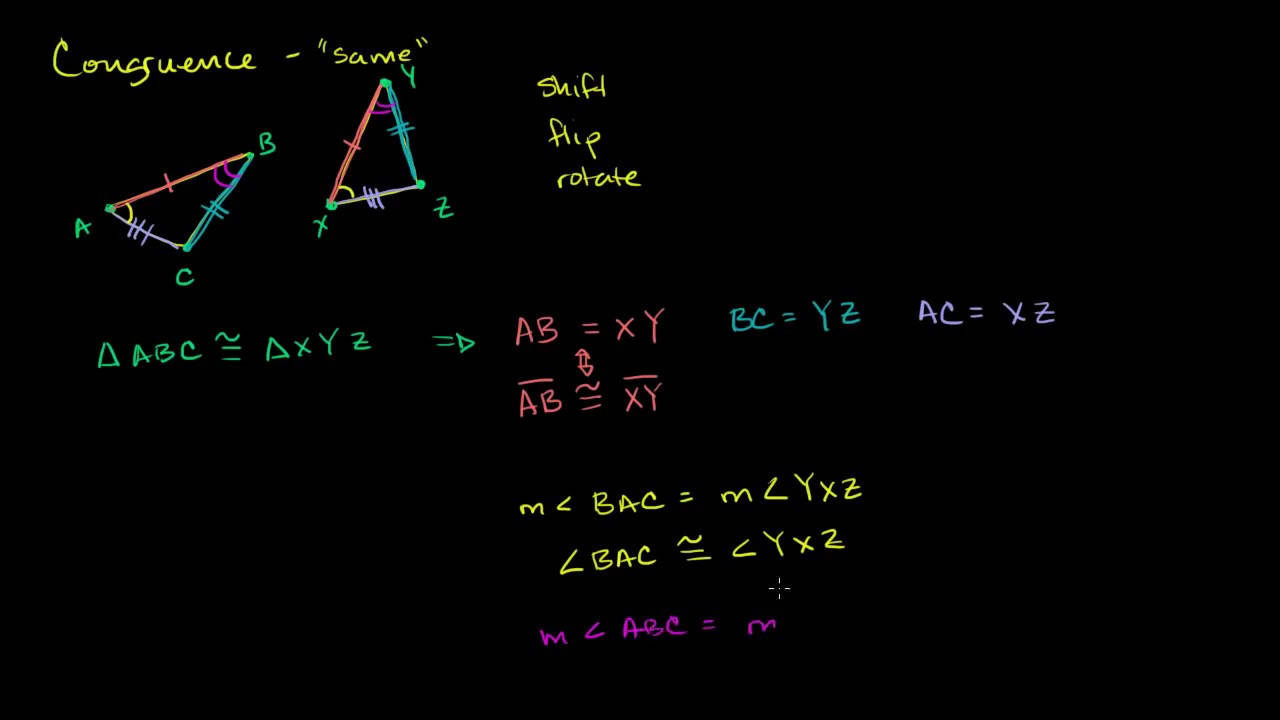 Congruence - "same"
shift
flip
rotate
Y
B
A
X
Z
C
△ABC ≅ △XYZ ⇒ AB = XY BC = YZ AC = XZ
⇕
A̅B̅ ≅ X̅Y̅
m < BAC = m ∠YXZ
∠BAC ≅ ∠YXZ
m < ABC = m